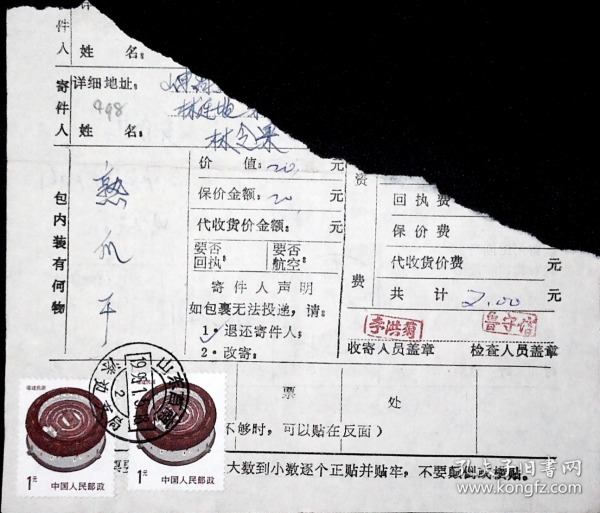 件 详
人 姓 名：
寄 详细地址：
件 498
人 姓 名： 林念果
包内装有何物
熟瓜干
价 值：20 元
保价金额：20 元
代收货价金额： 元
要否回执 要否航空
寄件人声明
如包裹无法投递，请：
1·退还寄件人；
2·改寄：
费
回执费
保价费 元
代收货价费 元
费 共计 2.00 元
李洪菊
收寄人员盖章 检查人员盖章
票 处
不够时，可以贴在反面）
大数到小数逐个正贴并贴牢，不要颠倒或搂贴。
山东
福建民居
1元 中国人民邮政
福建民居
1元 中国人民邮政
孔夫子旧书网
www.kongfz.com